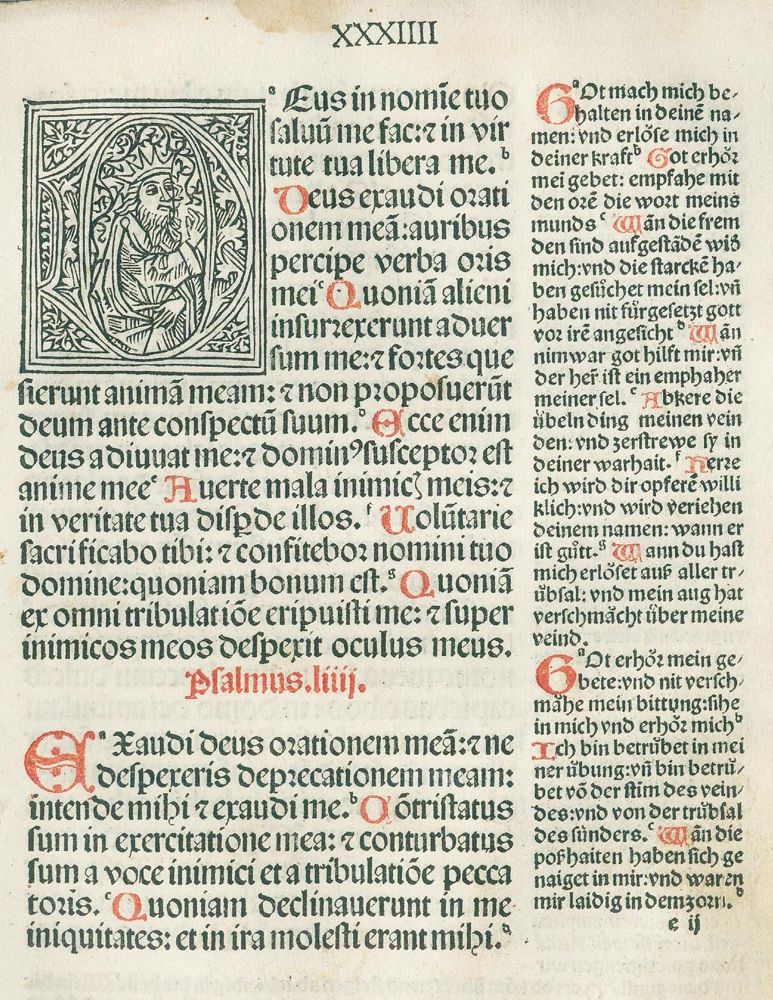 XXXIIII
ᵃ Eus in nomīe tuo
saluū me fac:⁊ in vir
tute tua libera me.ᵇ
Deus exaudi orati
onem meā:auribus
percipe verba oris
meiᶜ Quoniā alieni
insurrexerunt aduer
sum me:⁊ fortes que
sierunt animā meam: ⁊ non proposuerūt
deum ante conspectū suum.ᵈ Ecce enim
deus adiuuat me:⁊ dominꝰ susceptor est
anime meeᵉ Auerte mala inimicꝭ meis:⁊
in veritate tua disꝑde illos.ᶠ Uolūtarie
sacrificabo tibi: ⁊ confitebor nomini tuo
domine:quoniam bonum est.ᵍ Quoniā
ex omni tribulatiōe eripuisti me: ⁊ super
inimicos meos despexit oculus meus.
Psalmus.liiij.
Eᵃ Xaudi deus orationem meā:⁊ ne
despexeris deprecationem meam:
intende mihi ⁊ exaudi me.ᵇ Cōtristatus
sum in exercitatione mea: ⁊ conturbatus
sum a voce inimici et a tribulatiōe pecca
toris.ᶜ Quoniam declinauerunt in me
iniquitates: et in ira molesti erant mihi.ᵈ
Gᵃ Ot mach mich be-
halten in deinē na-
men: vnd erlöse mich in
deiner kraftᵇ Got erhör
mei gebet: empfahe mit
den orē die wort meins
mundsᶜ Wān die frem
den sind aufgestādē wid̄
mich:vnd die starckē ha-
ben gesůchet mein sel:vn̄
haben nit fürgesetzt gott
vor irē angesichtᵈ Wān
nimwar got hilft mir:vn̄
der her̄ ist ein emphaher
meiner sel.ᵉ Abkere die
übeln ding meinen vein
den: vnd zerstrewe sy in
deiner warhait.ᶠ Herre
ich wird dir opferē willi
klich:vnd wird veriehen
deinem namen: wann er
ist gůtt.ᵍ Wann du hast
mich erlöset auß aller tr-
übsal: vnd mein aug hat
verschmächt über meine
veind.
Gᵃ Ot erhör mein ge-
bete:vnd nit versch-
mähe mein bittung:sihe
in mich vnd erhör michᵇ
Ich bin betrübet in mei
ner übung:vn̄ bin betrü-
bet vō der stim des vein-
des:vnd von der trübsal
des sünders.ᶜ Wān die
poßhaiten haben sich ge
naiget in mir:vnd waren
mir laidig in dem zorn.ᵈ
e ij